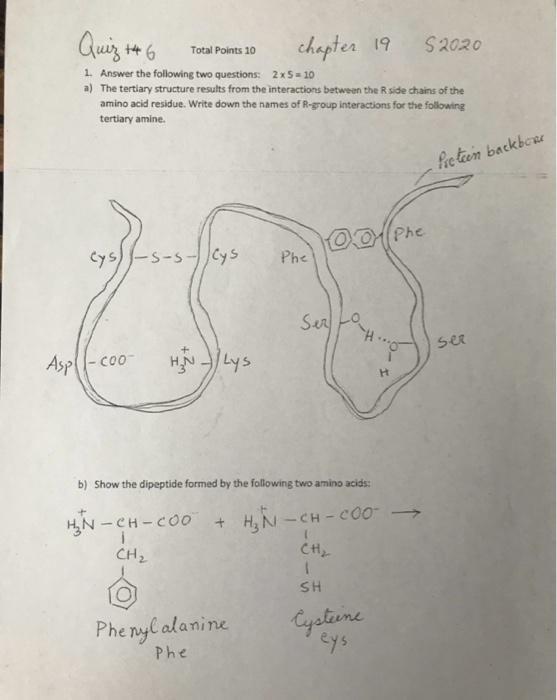 Quiz # 6 Total Points 10 chapter 19 S2020
1. Answer the following two questions: 2 x 5 = 10
a) The tertiary structure results from the interactions between the R side chains of the
amino acid residue. Write down the names of R-group interactions for the following
tertiary amine.
Protein backbone
Cys -S-S- Cys Phe Phe
Ser O H...O- Ser
H
Asp -COO⁻ H₃N⁺- Lys
b) Show the dipeptide formed by the following two amino acids:
H₃N⁺-CH-COO⁻ + H₃N⁺-CH-COO⁻ →
CH₂ CH₂
SH
Phenylalanine Cysteine
Phe cys